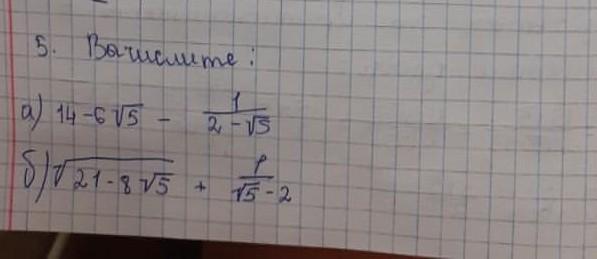 5. Вычислите:
а) 14 - 6√5 - 1/(2 - √5)
б) √(21 - 8√5) + 1/(√5 - 2)